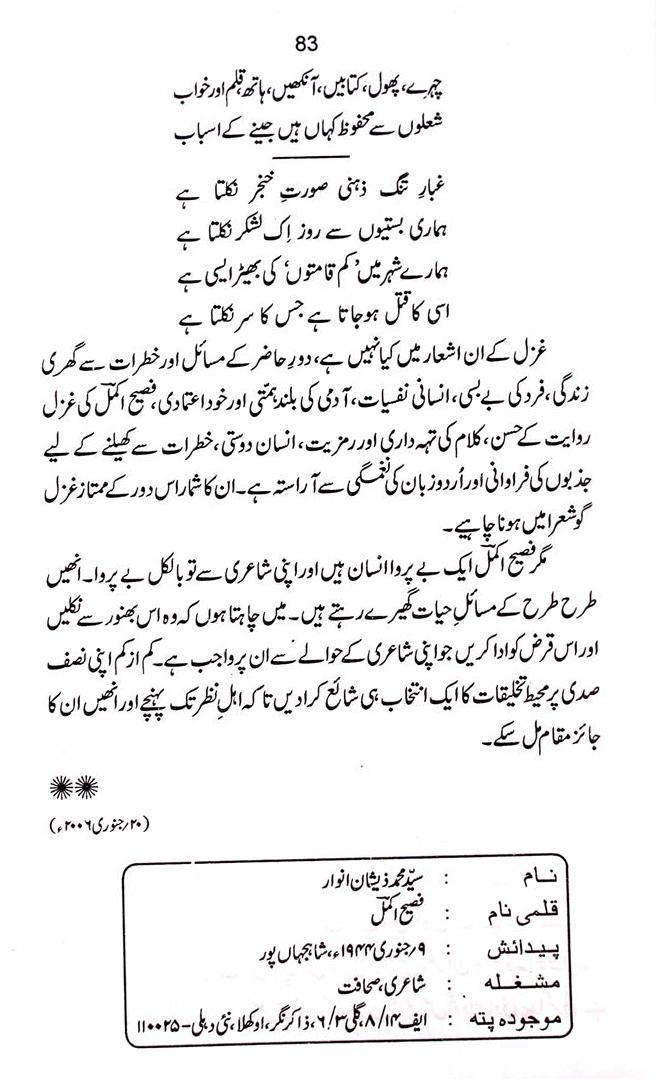 83
چہرے، پھول، کتابیں، آنکھیں، ہاتھ، قلم اور خواب
شعلوں سے محفوظ کہاں ہیں جینے کے اسباب
غبارِ تنگ ذہنی صورتِ خنجر نکلتا ہے
ہماری بستیوں سے روز اِک لشکر نکلتا ہے
ہمارے شہر میں ’کم قامتوں‘ کی بھیڑ ایسی ہے
اسی کا قتل ہوجاتا ہے جس کا سر نکلتا ہے
غزل کے ان اشعار میں کیا نہیں ہے، دورِ حاضر کے مسائل اور خطرات سے گھری
زندگی، فرد کی بے بسی، انسانی نفسیات، آدمی کی بلند ہمتی اور خود اعتمادی، فصیح اکملؔ کی غزل
روایت کے حسن، کلام کی تہہ داری اور رمزیت، انسان دوستی، خطرات سے کھیلنے کے لیے
جذبوں کی فراوانی اور اُردو زبان کی نغمگی سے آراستہ ہے۔ ان کا شمار اس دور کے ممتاز غزل
گو شعرا میں ہونا چاہیے۔
مگر فصیح اکملؔ ایک بے پروا انسان ہیں اور اپنی شاعری سے تو بالکل بے پروا۔ انھیں
طرح طرح کے مسائلِ حیات گھیرے رہتے ہیں۔ میں چاہتا ہوں کہ وہ اس بھنور سے نکلیں
اور اس قرض کو ادا کریں جو اپنی شاعری کے حوالے سے ان پر واجب ہے۔ کم از کم اپنی نصف
صدی پر محیط تخلیقات کا ایک انتخاب ہی شائع کرادیں تاکہ اہلِ نظر تک پہنچے اور انھیں ان کا
جائز مقام مل سکے۔
(۲۰؍جنوری ۲۰۰۶ء)
نام : سیّد محمد ذیشان انوار
قلمی نام : فصیح اکملؔ
پیدائش : ۹؍جنوری ۱۹۴۴ء، شاہجہاں پور
مشغلہ : شاعری، صحافت
موجودہ پتہ : ایف ۱۴/۸، گلی ۶/۳، ذاکر نگر، اوکھلا، نئی دہلی-۱۱۰۰۲۵